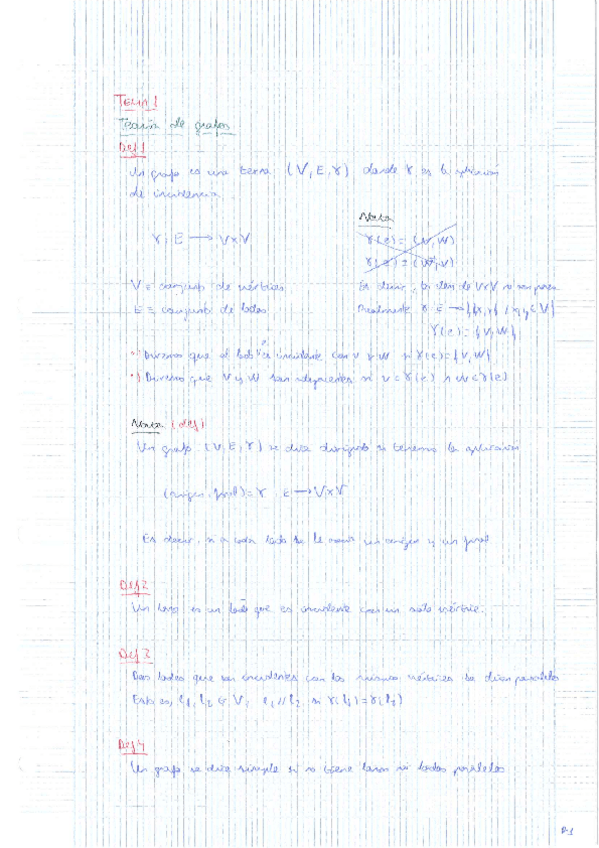 TEMA 1
Teoría de grafos
Def 1
Un grafo es una terna (V, E, γ) donde γ es la aplicación
de incidencia
Nota
γ: E → V×V
γ(e) = (V, W)
γ(e) = (W, V)
V = conjunto de vértices
Es decir, los elem de V×V no son pares
E = conjunto de lados
Realmente γ: E → {{x,y} / x,y ∈ V}
γ(e) = {V, W}
·) Diremos que el lado e es incidente con V y W si γ(e) = {V, W}
·) Diremos que V y W son adyacentes si V ∈ γ(e) y W ∈ γ(e)
Nota (def)
Un grafo (V, E, γ) se dice dirigido si tenemos la aplicación
(origen, final) = γ: E → V×V
Es decir, si a cada lado se le un origen y un final
Def 2
Un lazo es un lado que es incidente con un solo vértice.
Def 3
Dos lados que son incidentes con los mismos vértices se dicen paralelos
Esto es, l₁, l₂ ∈ V, l₁ // l₂ si γ(l₁) = γ(l₂)
Def 4
Un grafo se dice simple si no tiene lazos ni lados paralelos
P-1